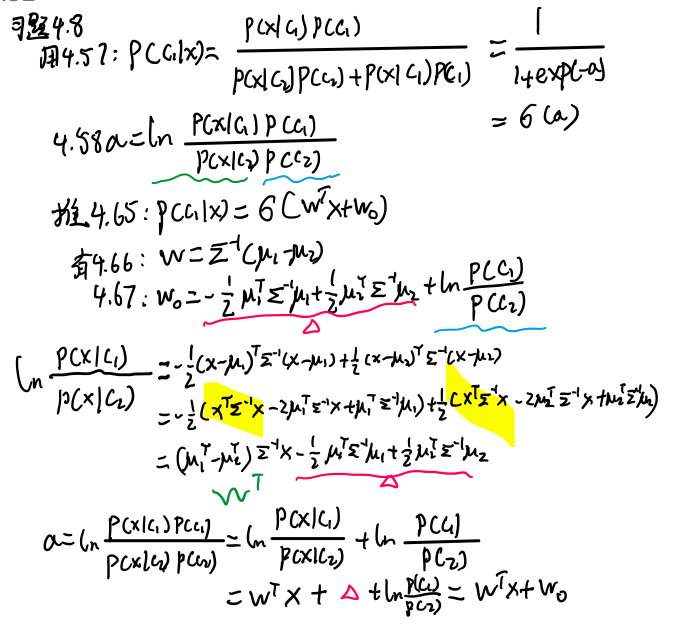 习题4.8
用4.57: P(C₁|x)= P(x|C₁)P(C₁) / P(x|C₂)P(C₂)+P(x|C₁)P(C₁) = 1 / 1+exp(-a)
= σ(a)
4.58 a=ln P(x|C₁)P(C₁) / P(x|C₂)P(C₂)
推4.65: P(C₁|x)= σ(wᵀx+w₀)
有4.66: w=Σ⁻¹(μ₁-μ₂)
4.67: w₀=-1/2 μ₁ᵀΣ⁻¹μ₁+1/2 μ₂ᵀΣ⁻¹μ₂+ln P(C₁)/P(C₂)
△
ln P(x|C₁)/P(x|C₂) =-1/2(x-μ₁)ᵀΣ⁻¹(x-μ₁)+1/2(x-μ₂)ᵀΣ⁻¹(x-μ₂)
=-1/2(xᵀΣ⁻¹x-2μ₁ᵀΣ⁻¹x+μ₁ᵀΣ⁻¹μ₁)+1/2(xᵀΣ⁻¹x-2μ₂ᵀΣ⁻¹x+μ₂ᵀΣ⁻¹μ₂)
=(μ₁ᵀ-μ₂ᵀ)Σ⁻¹x-1/2 μ₁ᵀΣ⁻¹μ₁+1/2 μ₂ᵀΣ⁻¹μ₂
wᵀ △
a=ln P(x|C₁)P(C₁)/P(x|C₂)P(C₂) =ln P(x|C₁)/P(x|C₂) +ln P(C₁)/P(C₂)
=wᵀx+ △ +ln P(C₁)/P(C₂) = wᵀx+w₀